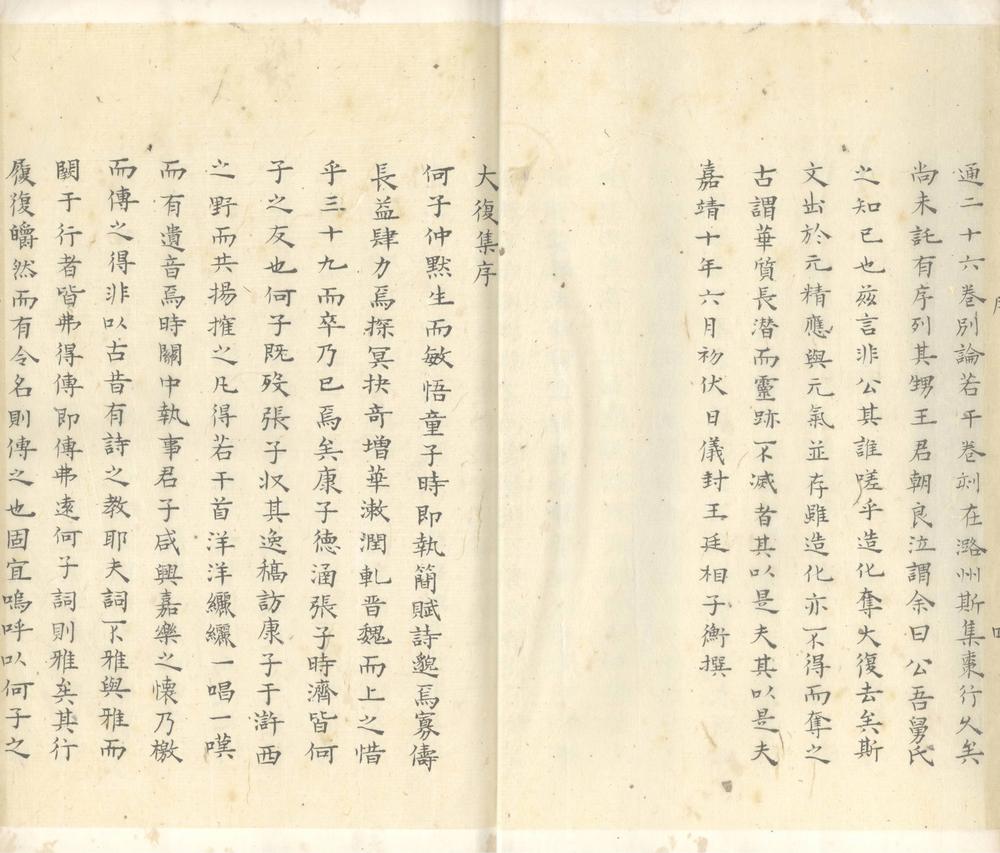 通二十六卷別論若干卷刻在潞州斯集棗行久矣
尚未託有序列其甥王君朝良泣謂余曰公吾舅氏
之知己也茲言非公其誰嗟乎造化奪大復去矣斯
文出於元精應與元氣並存雖造化亦不得而奪之
古謂華質長潛而靈跡不滅者其以是夫其以是夫
嘉靖十年六月初伏日儀封王廷相子衡撰
大復集序
何子仲默生而敏悟童子時即執簡賦詩邈焉寡儔
長益肆力焉探冥抉奇增華漱潤軋晋魏而上之惜
乎三十九而卒乃已焉矣康子德涵張子時濟皆何
子之友也何子既歿張子収其逸稿訪康子于滸西
之野而共揚搉之凡得若干首洋洋纚纚一唱一嘆
而有遺音焉時關中執事君子咸興嘉樂之懷乃檄
而傳之得非以古昔有詩之教耶夫詞不雅與雅而
闕于行者皆弗得傳即傳弗遠何子詞則雅矣其行
履復皭然而有令名則傳之也固宜嗚呼以何子之